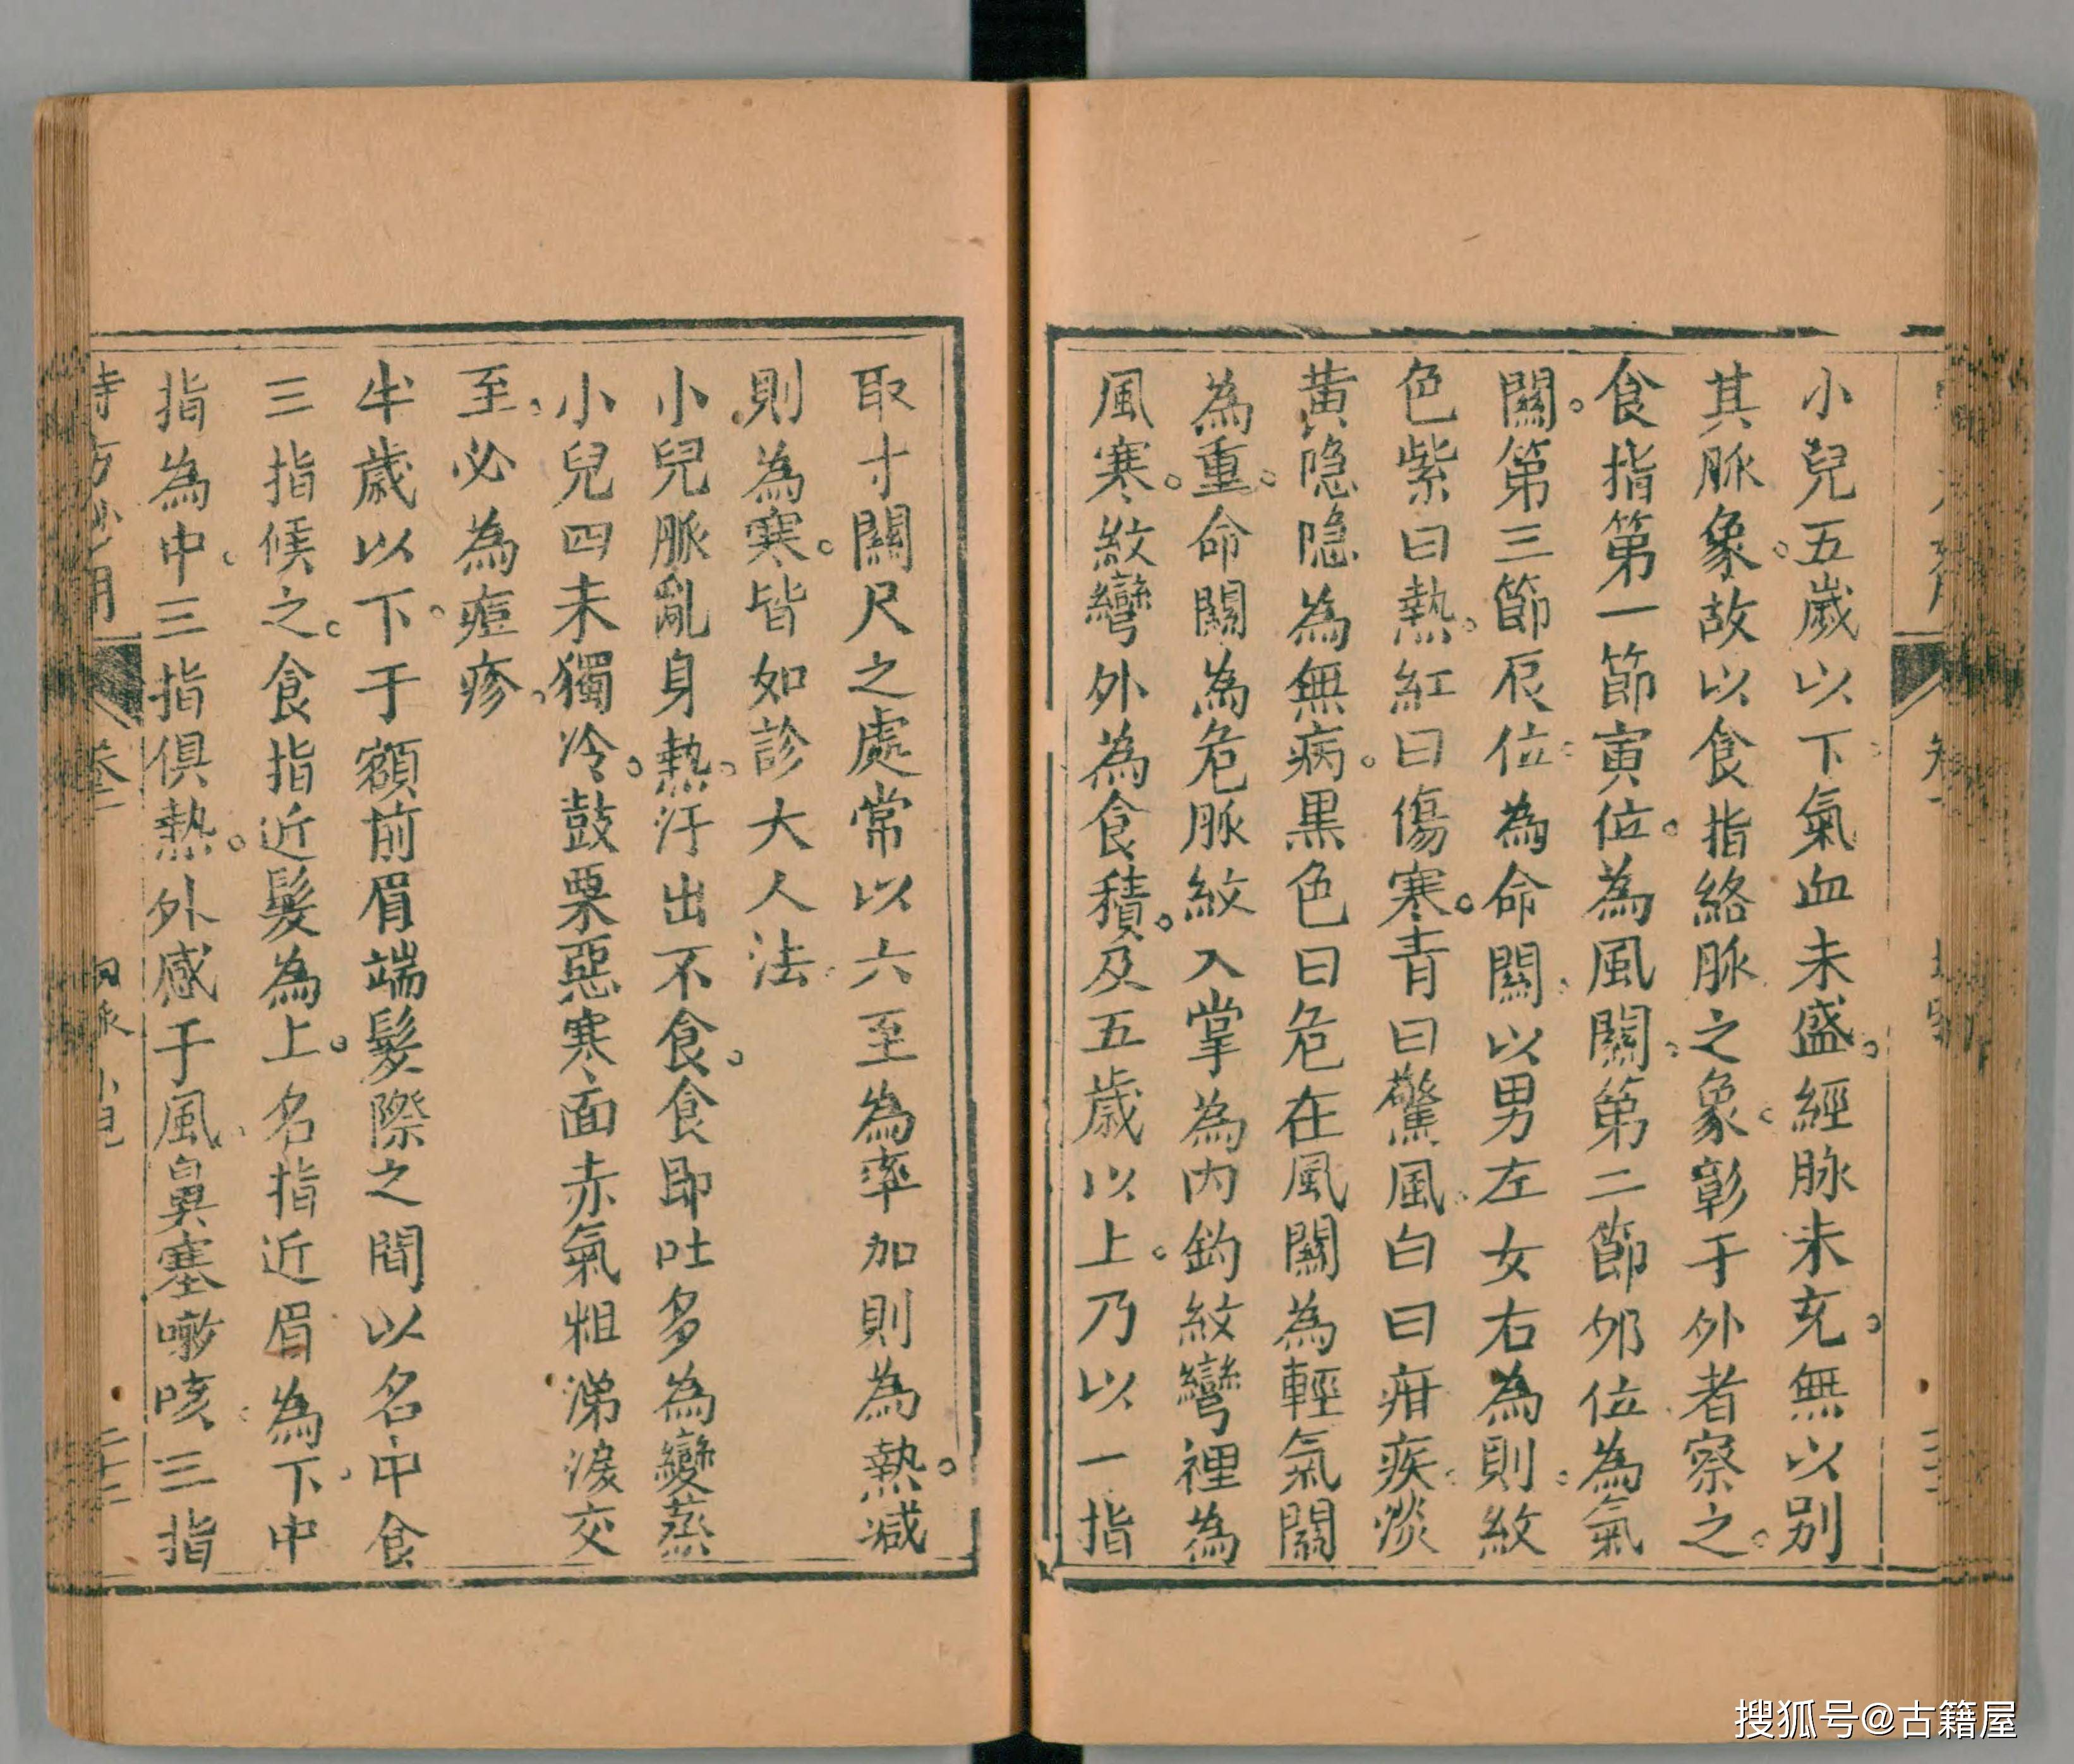 小兒五嵗以下氣血未盛。經脉未充。無以别
其脈象。故以食指絡脈之象。彰于外者察之。
食指第一節寅位。為風關。第二節夘位為氣
關。第三節辰位。為命關。以男左女右為則。紋
色紫曰熱。紅曰傷寒。青曰驚風。白曰疳疾。淡
黄隠隠為無病。黒色曰危在風關為輕氣關
為重。命關為危脈紋入掌為内釣紋彎裡為
風寒。紋彎外為食積。及五歳以上。乃以一指
取寸關尺之處常以六至為率加則為熱。减
則為寒。皆如診大人法。
小兒脈亂身熱。汗出不食。食即吐多為變蒸
小兒四末獨冷。鼓栗惡寒面赤氣粗涕淚交
至。必為痘疹。
半歳以下。于額前眉端髮際之間以名中食
三指候之。食指近髮為上。名指近眉為下。中
指為中。三指俱熱。外感于風。鼻塞嗽咳。三指
卷二
小兒
二十二
搜狐号@古籍屋